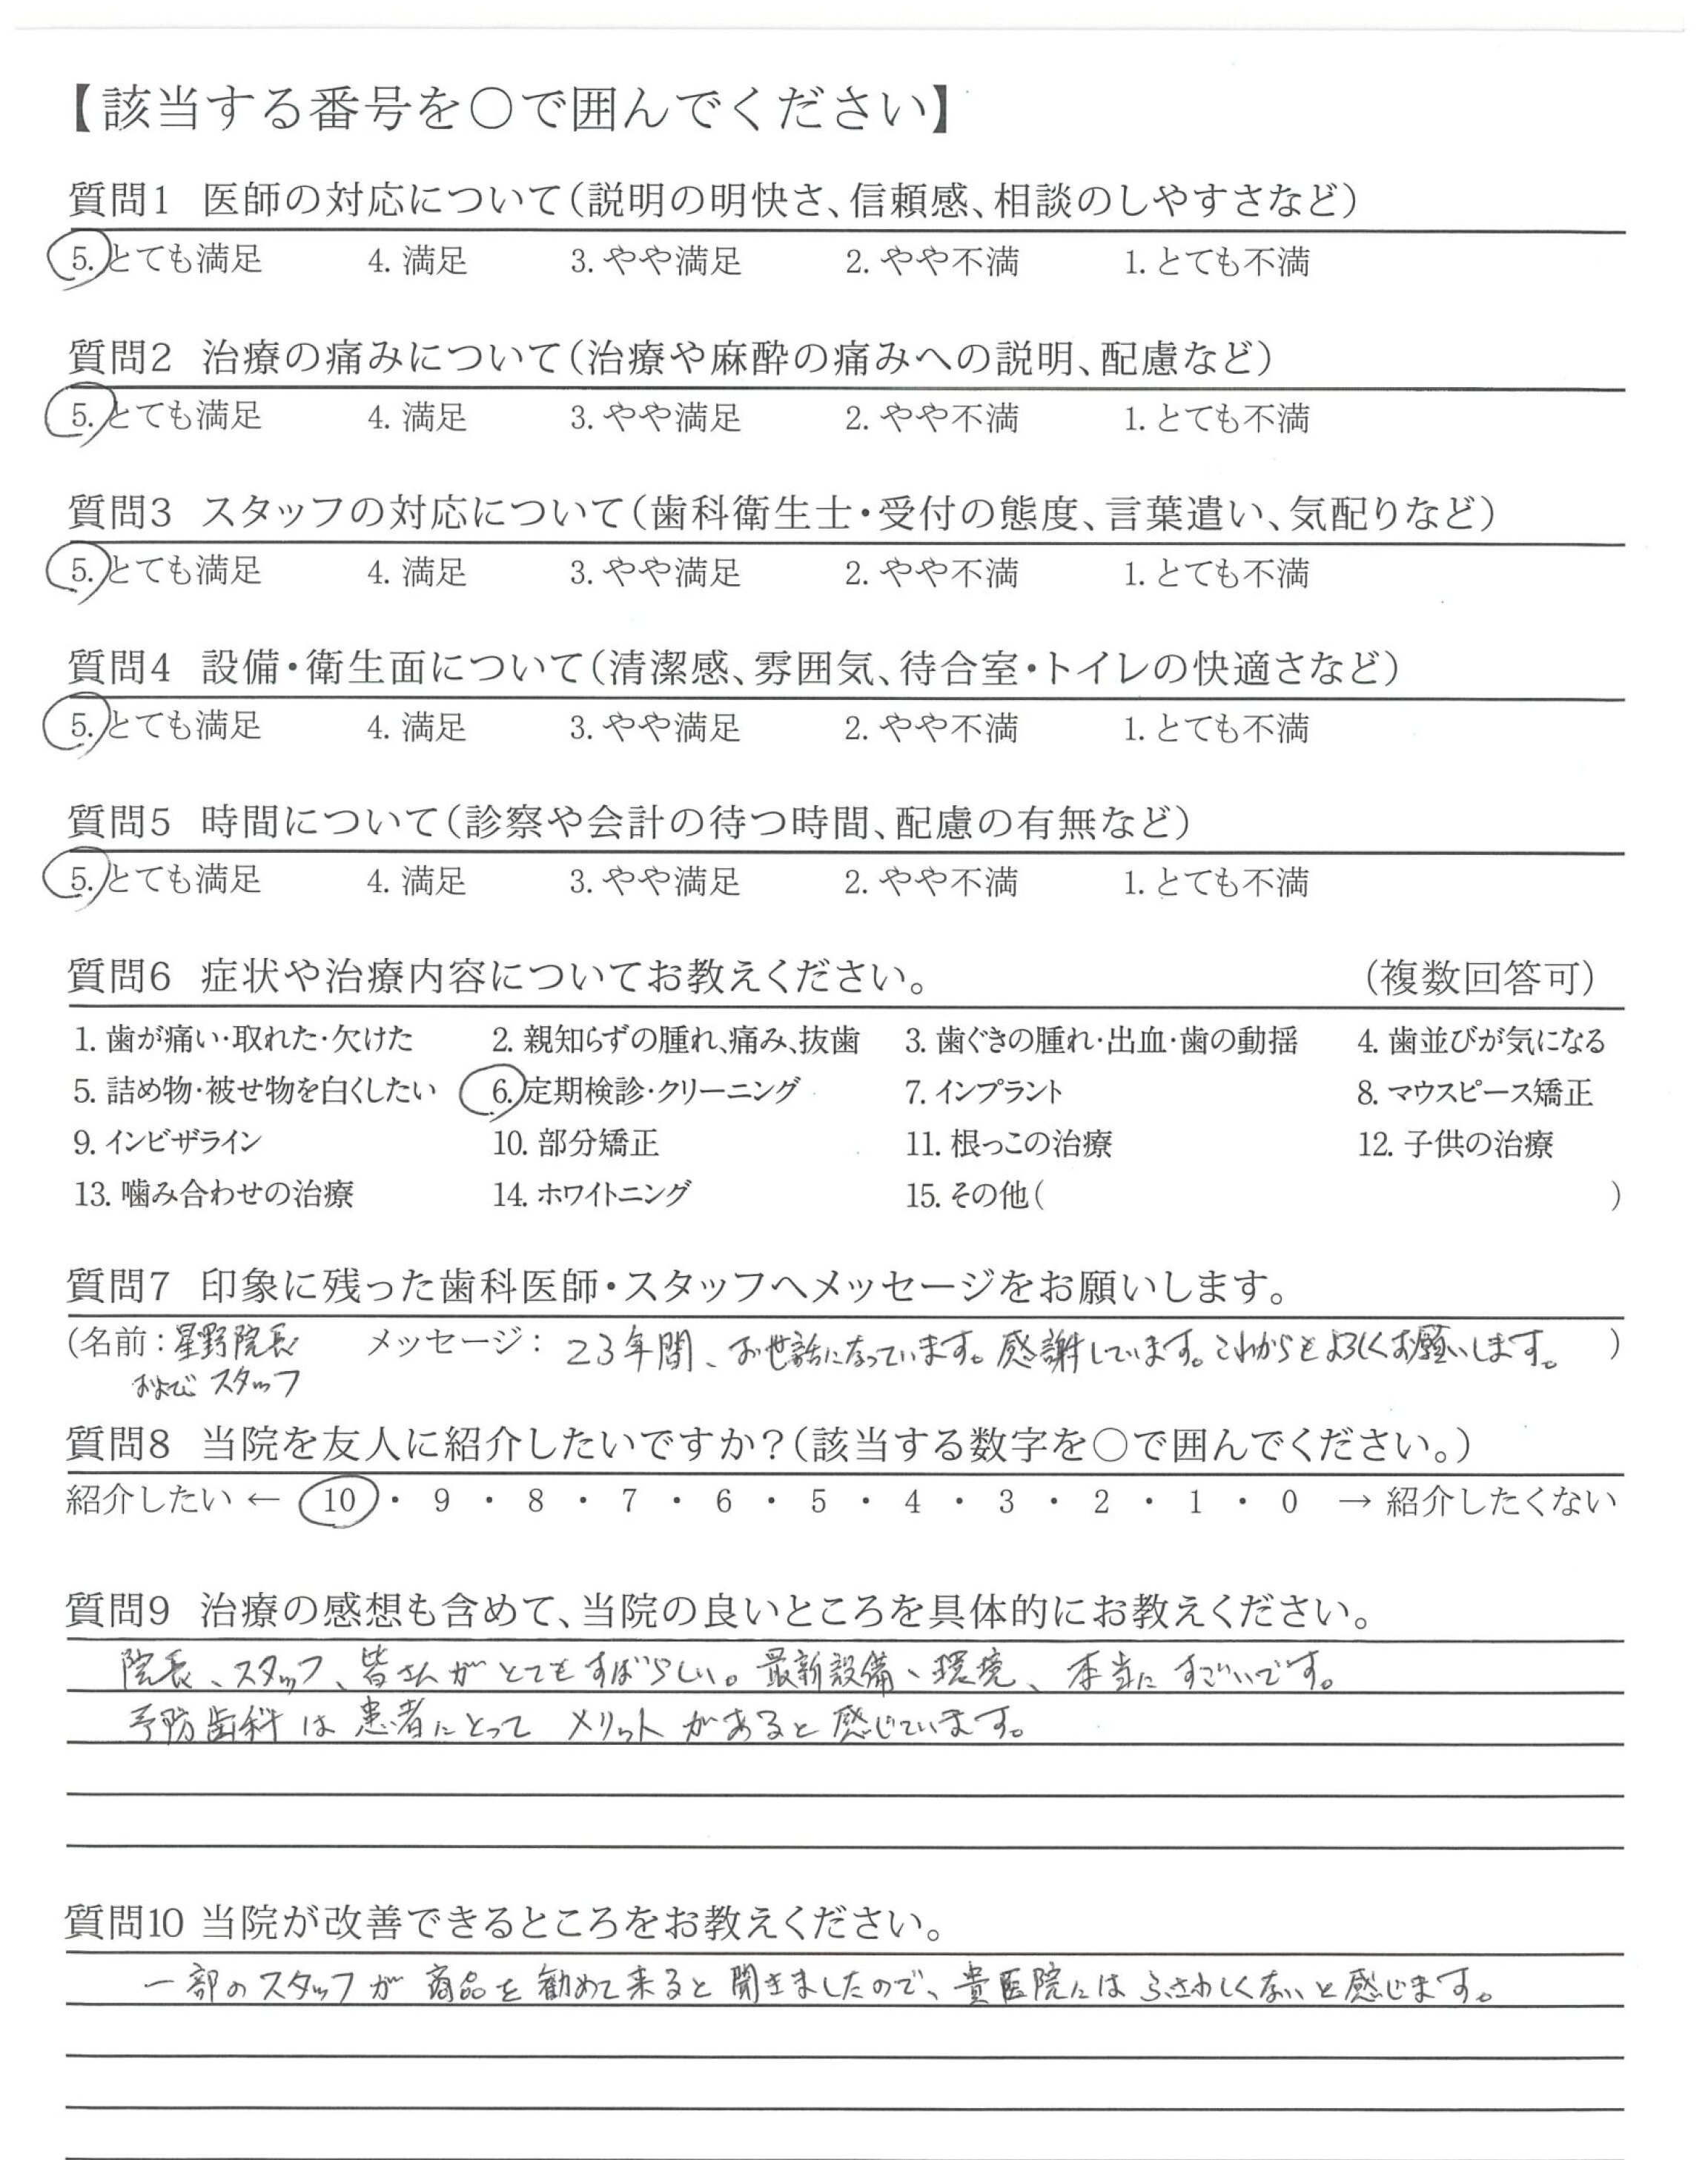 【該当する番号を○で囲んでください】
質問1 医師の対応について(説明の明快さ、信頼感、相談のしやすさなど)
5. とても満足 4. 満足 3. やや満足 2. やや不満 1. とても不満
質問2 治療の痛みについて(治療や麻酔の痛みへの説明、配慮など)
5. とても満足 4. 満足 3. やや満足 2. やや不満 1. とても不満
質問3 スタッフの対応について(歯科衛生士・受付の態度、言葉遣い、気配りなど)
5. とても満足 4. 満足 3. やや満足 2. やや不満 1. とても不満
質問4 設備・衛生面について(清潔感、雰囲気、待合室・トイレの快適さなど)
5. とても満足 4. 満足 3. やや満足 2. やや不満 1. とても不満
質問5 時間について(診察や会計の待つ時間、配慮の有無など)
5. とても満足 4. 満足 3. やや満足 2. やや不満 1. とても不満
質問6 症状や治療内容についてお教えください。 (複数回答可)
1. 歯が痛い・取れた・欠けた 2. 親知らずの腫れ、痛み、抜歯 3. 歯ぐきの腫れ・出血・歯の動揺 4. 歯並びが気になる
5. 詰め物・被せ物を白くしたい 6. 定期検診・クリーニング 7. インプラント 8. マウスピース矯正
9. インビザライン 10. 部分矯正 11. 根っこの治療 12. 子供の治療
13. 噛み合わせの治療 14. ホワイトニング 15. その他( )
質問7 印象に残った歯科医師・スタッフへメッセージをお願いします。
(名前:星野院長 メッセージ: 23年間、お世話になっています。感謝しています。これからもよろしくお願いします。 )
およびスタッフ
質問8 当院を友人に紹介したいですか?(該当する数字を○で囲んでください。)
紹介したい ← 10 ・ 9 ・ 8 ・ 7 ・ 6 ・ 5 ・ 4 ・ 3 ・ 2 ・ 1 ・ 0 → 紹介したくない
質問9 治療の感想も含めて、当院の良いところを具体的にお教えください。
院長、スタッフ、皆さんがとてもすばらしい。最新設備、環境、本当にすごいです。
予防歯科は患者にとってメリットがあると感じています。
質問10 当院が改善できるところをお教えください。
一部のスタッフが商品を勧めて来ると聞きましたので、貴医院にはふさわしくないと感じます。